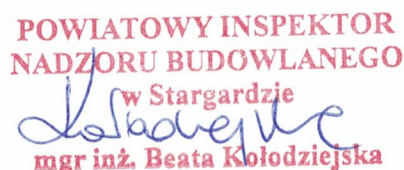 POWIATOWY INSPEKTOR
NADZORU BUDOWLANEGO
w Stargardzie
mgr inż. Beata Kołodziejska